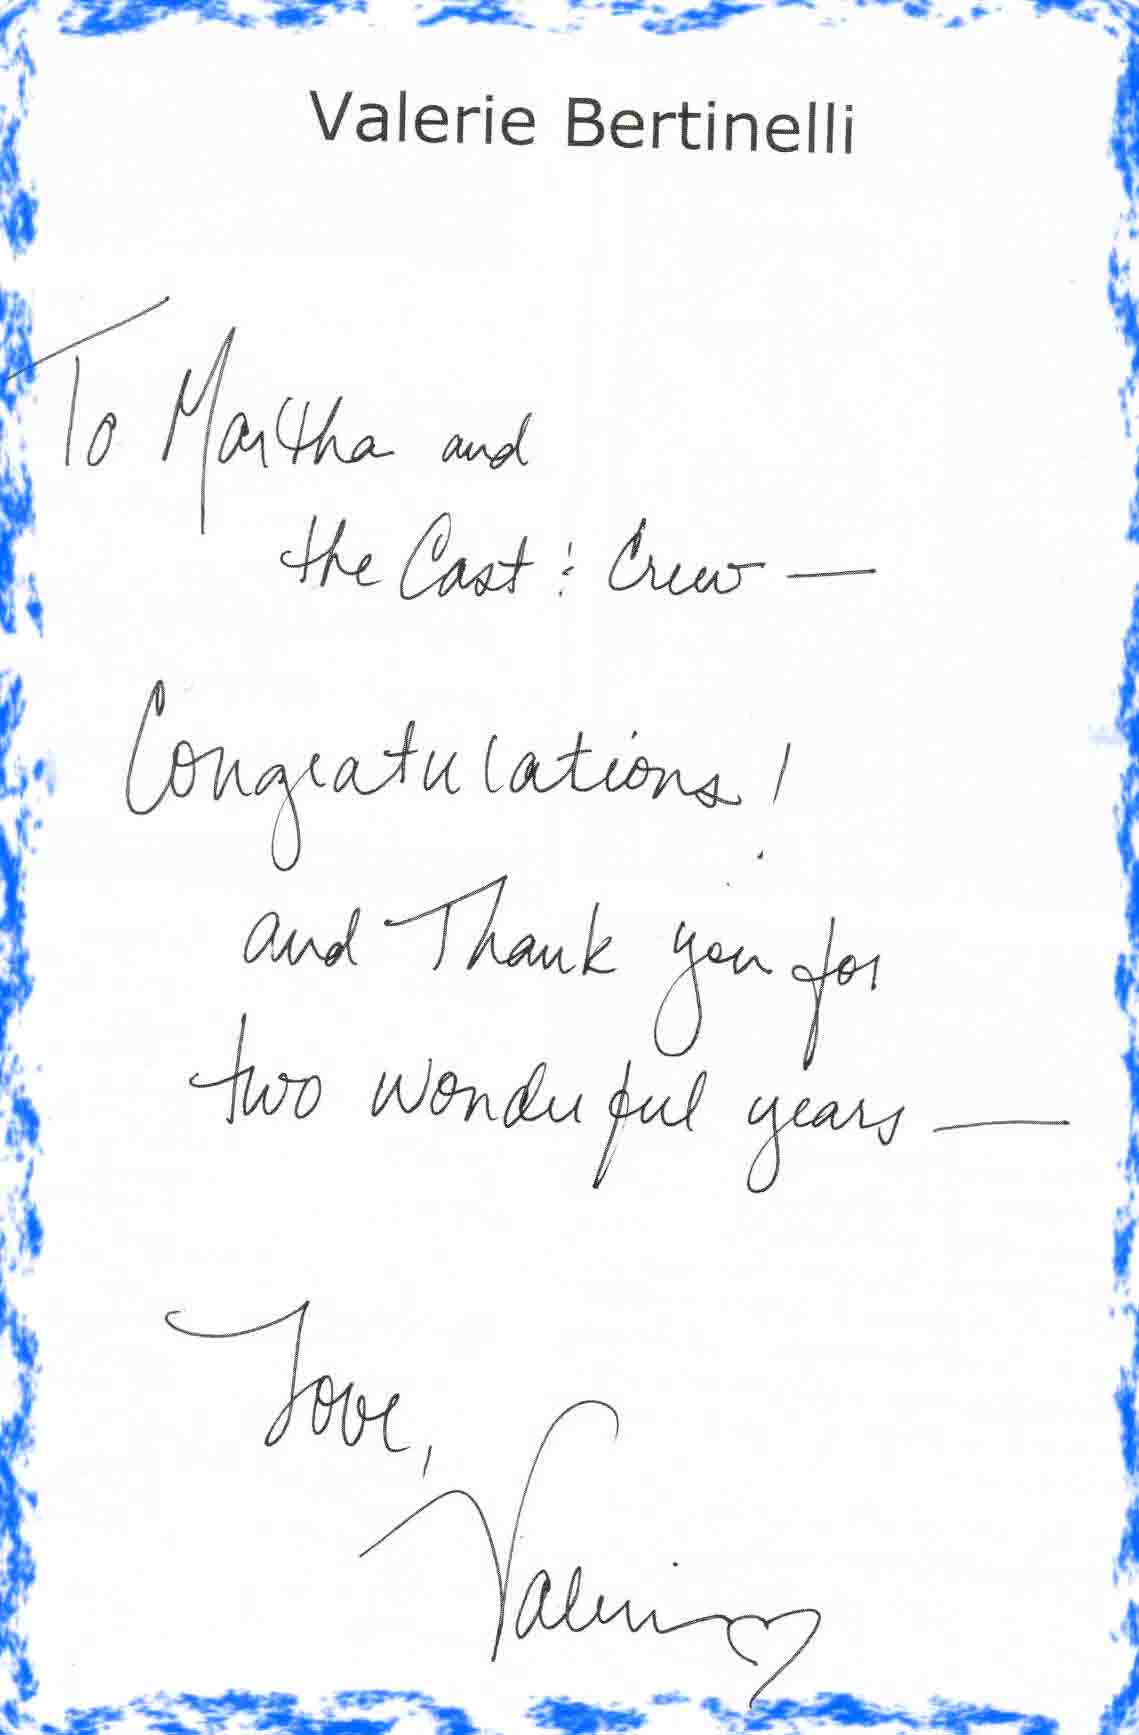 Valerie Bertinelli
To Martha and
the Cast & Crew —
Congratulations!
and Thank you for
two wonderful years —
Love,
Valerie